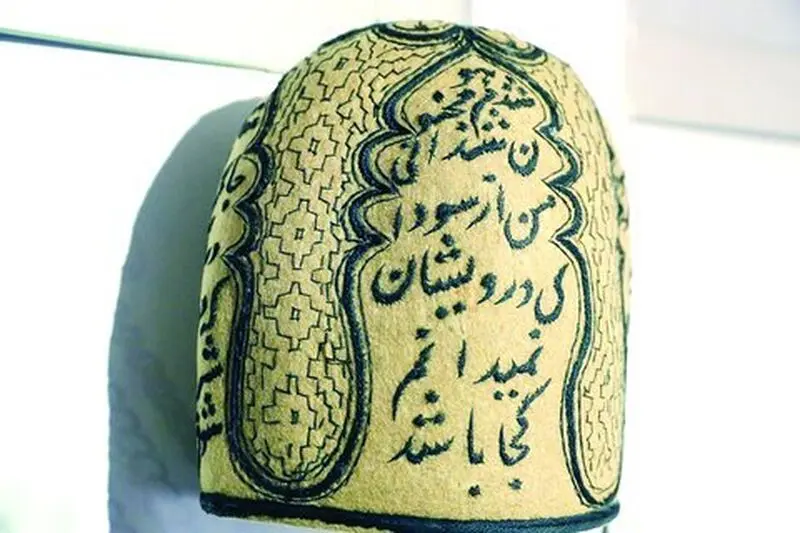 شدم مجنو
ن شیدائی
من از سودا
ی درویشان
نمیدانم
کجا باشد